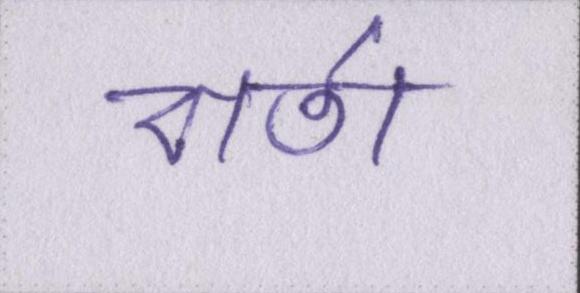 বার্তা